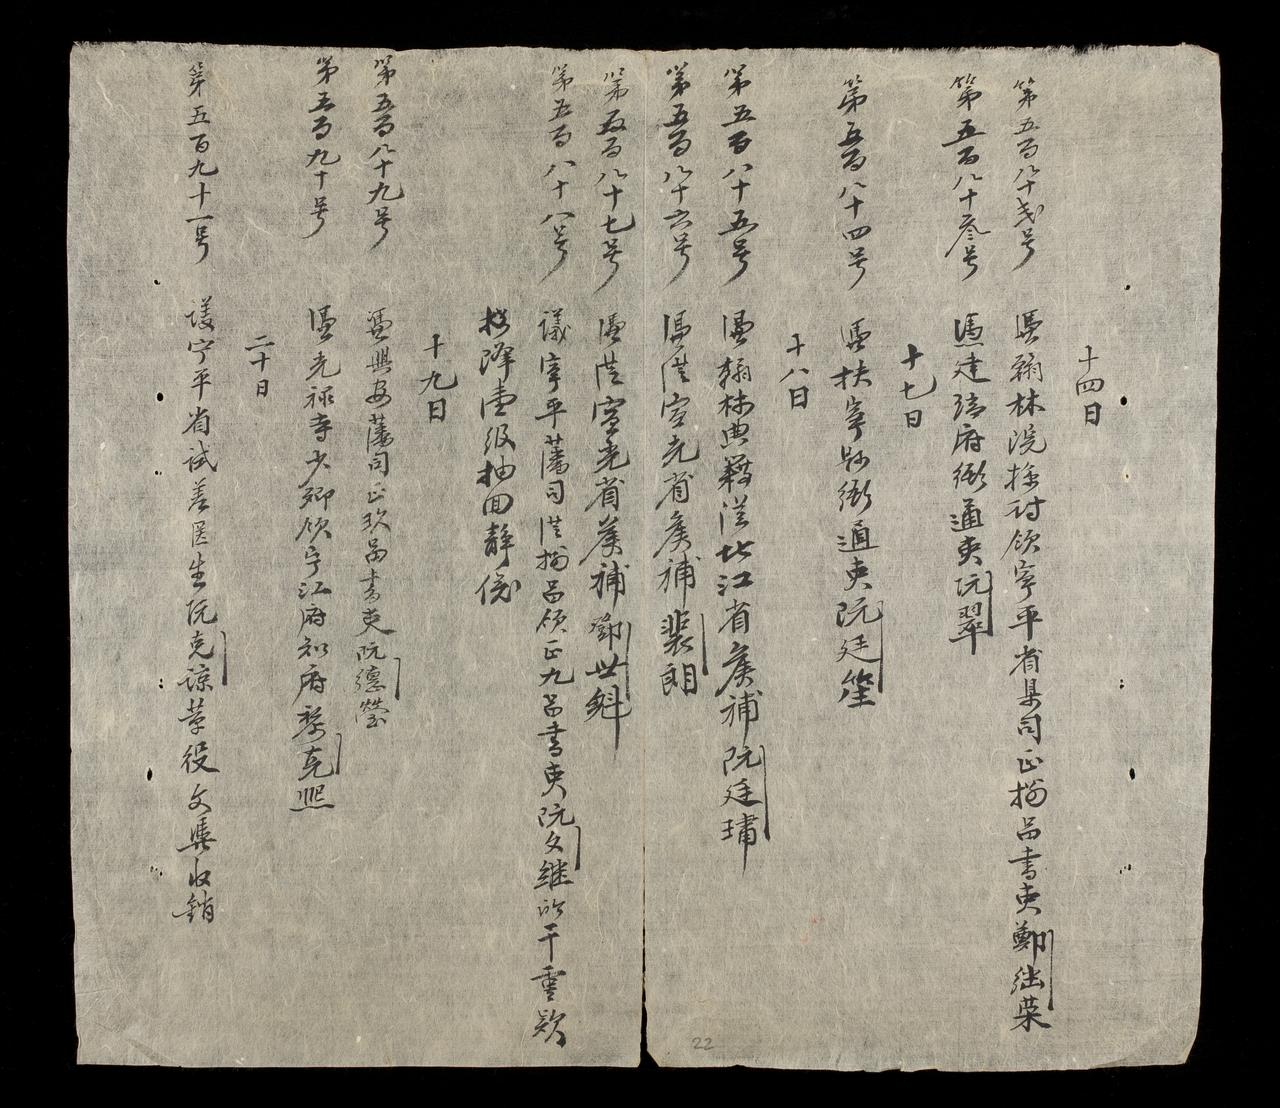 十四日
第五百八十弍号 憑翰林院檢討領寧平省臬司正捌品書吏鄭繼荣
第五百八十叁号 憑建瑞府衙通吏阮翠
十七日
第五百八十四号 憑扶寧縣衙通吏阮廷笙
十八日
第五百八十五号 憑翰林典籍從北江省候補阮廷璛
第五百八十六号 憑從宣光省候補裴朗
第五百八十七号 憑從宣光省候補鄧世魁
第五百八十八号 議寧平藩司從捌品領正九品書吏阮文継所干重欵
擬降壹級抽回静俟
十九日
第五百八十九号 憑興安藩司正玖品書吏阮德瑩
第五百九十号 憑光禄寺少卿領宁江府知府黎克熙
二十日
第五百九十一号 議宁平省試差医生阮克諒革役文憑收銷
22